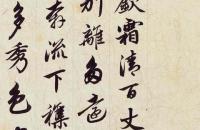 歛霜清百丈
別離多遠
流下
多秀色